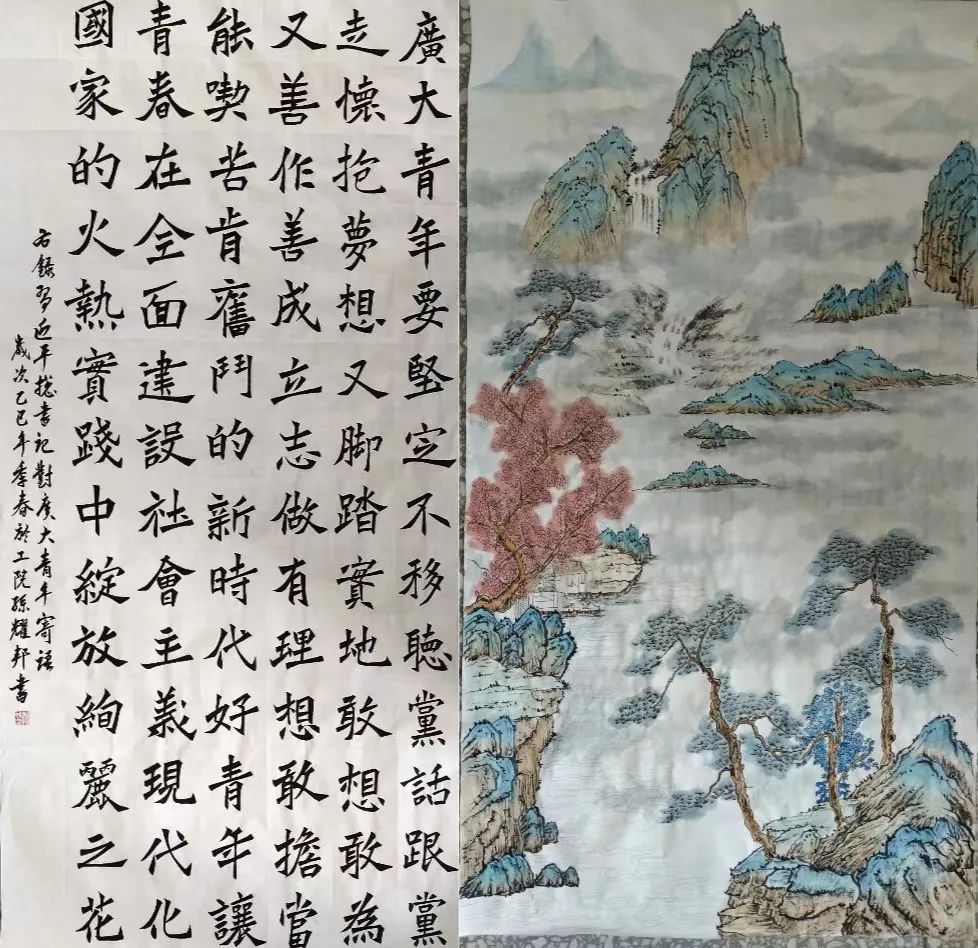 廣大青年要堅定不移聽黨話跟黨
走懷抱夢想又脚踏實地敢想敢為
又善作善成立志做有理想敢擔當
能喫苦肯奮鬥的新時代好青年讓
青春在全面建設社會主義現代化
國家的火熱實踐中綻放絢麗之花
右錄習近平總書記對廣大青年寄語
歲次乙巳年季春於工院孫耀邦書